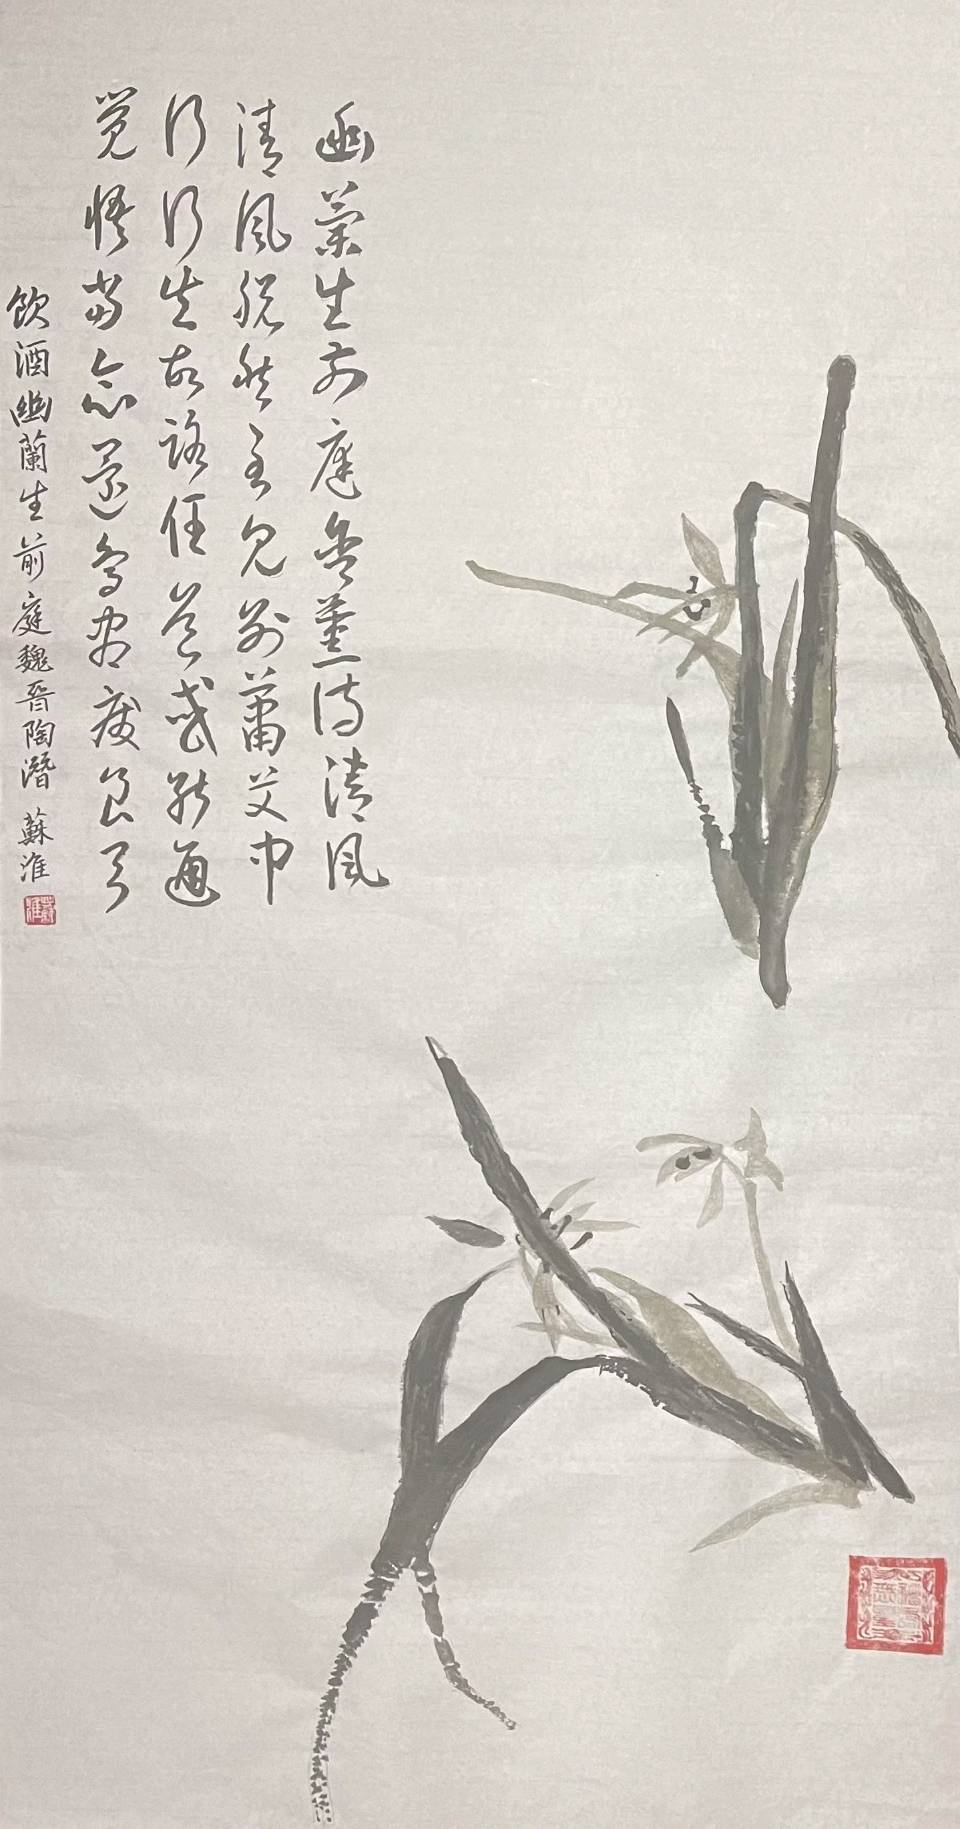 幽蘭生前庭含薰待清風
清風脫然至見別蕭艾中
行行失故路任道或能通
覺悟當念還鳥盡廢良弓
飲酒幽蘭生前庭魏晉陶潛 蘇淮
蘇淮